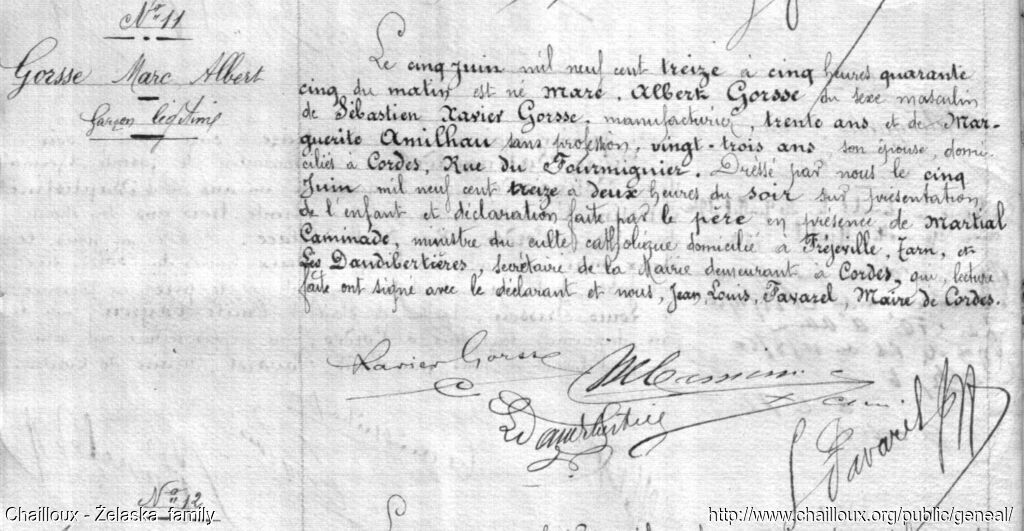 N° 11
Gorsse Marc Albert
Garçon légitime
Le cinq Juin mil neuf cent treize à cinq heures quarante
cinq du matin est né Marc, Albert Gorsse du sexe masculin
de Sébastien Xavier Gorsse, manufacturier, trente ans et de Mar-
guerite Amilhau sans profession, vingt-trois ans, son épouse, domi-
ciliés à Cordes, Rue du Fourmiguier. Dressé par nous le cinq
Juin mil neuf cent treize à deux heures du soir sur présentation
de l'enfant et déclaration faite par le père en présence de Martial
Caminade, ministre du culte catholique domicilié à Fréjeville, Tarn, et
Daudibertières, secrétaire de la Mairie demeurant à Cordes, qui, lecture
faite ont signé avec le déclarant et nous, Jean, Louis, Favarel, Maire de Cordes.
Xavier Gorsse
Favarel
N° 12
Chailloux - Żelaska family
http://www.chailloux.org/public/geneal/